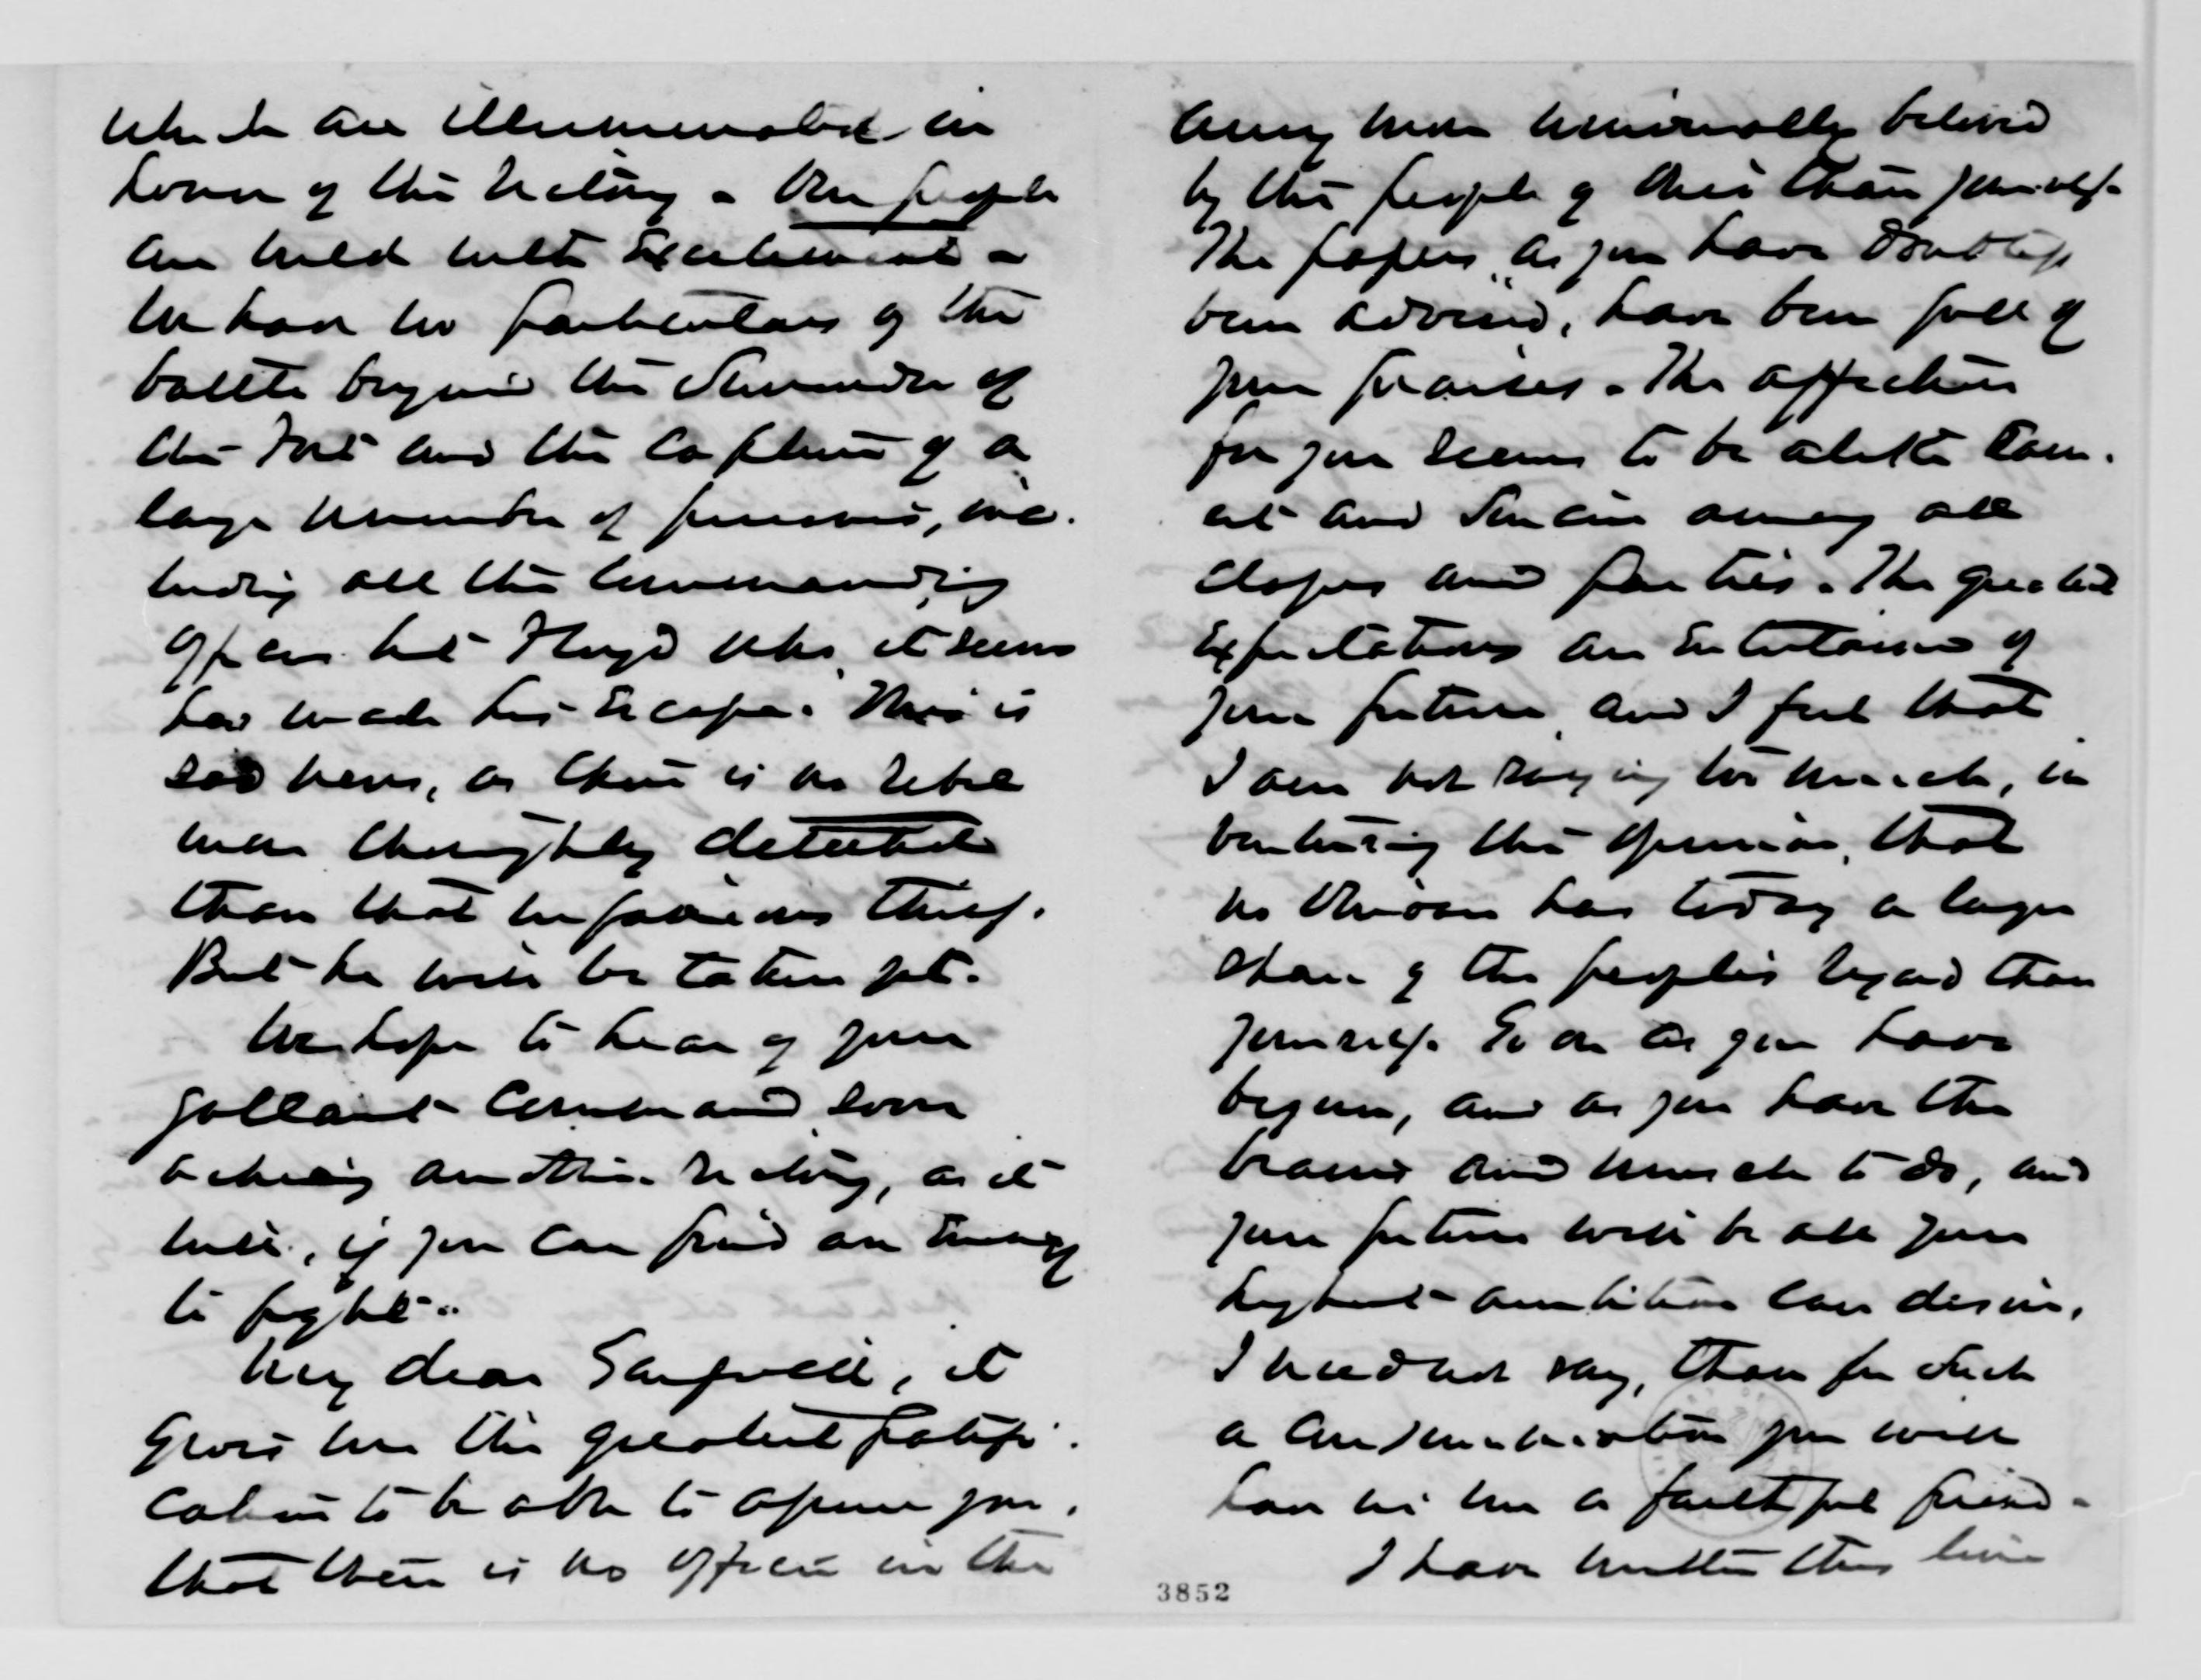 which are illuminated in
honor of the victory - Our people
are wild with excitement -
We have no particulars of the
battle beyond the surrender of
the Fort and the capture of a
large number of prisoners, inc.
luding all the commanding
officers but Floyd who, it seems
has made his escape. This is
sad news, as there is no rebel
more thoroughly detested
than that infamous thief.
But he will be taken yet.
We hope to hear of your
gallant command soon
achieving another victory, as it
will, if you can find an enemy
to fight.
My dear Garfield, it
gives me the greatest gratifi.
cation to be able to assure you,
that there is no officer in the
army more universally beloved
by the people of Ohio than yourself.
The papers, as you have doubtless
been advised, have been full of
your praises. The affection
for you seems to be alike earn.
est and sincere among all
classes and parties. The greatest
expectations are entertained of
your future, and I feel that
I am not saying too much, in
venturing the opinion, that
no Ohioan has today a larger
share of the peoples regard than
yourself. Go on as you have
begun, and as you have the
brains and muscle to do, and
your future will be all your
highest ambition can desire.
I need not say, than for such
a consummation you will
have in me a faithful friend -
I have written this line
3852